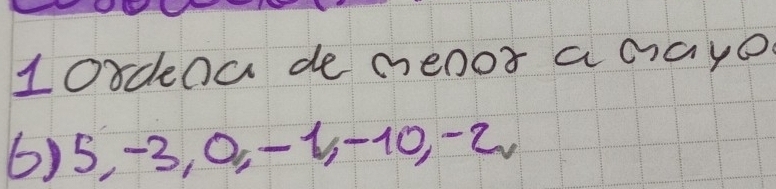 1 Ordena de menor a mayo
b) 5, -3, 0, -1, -10, -2